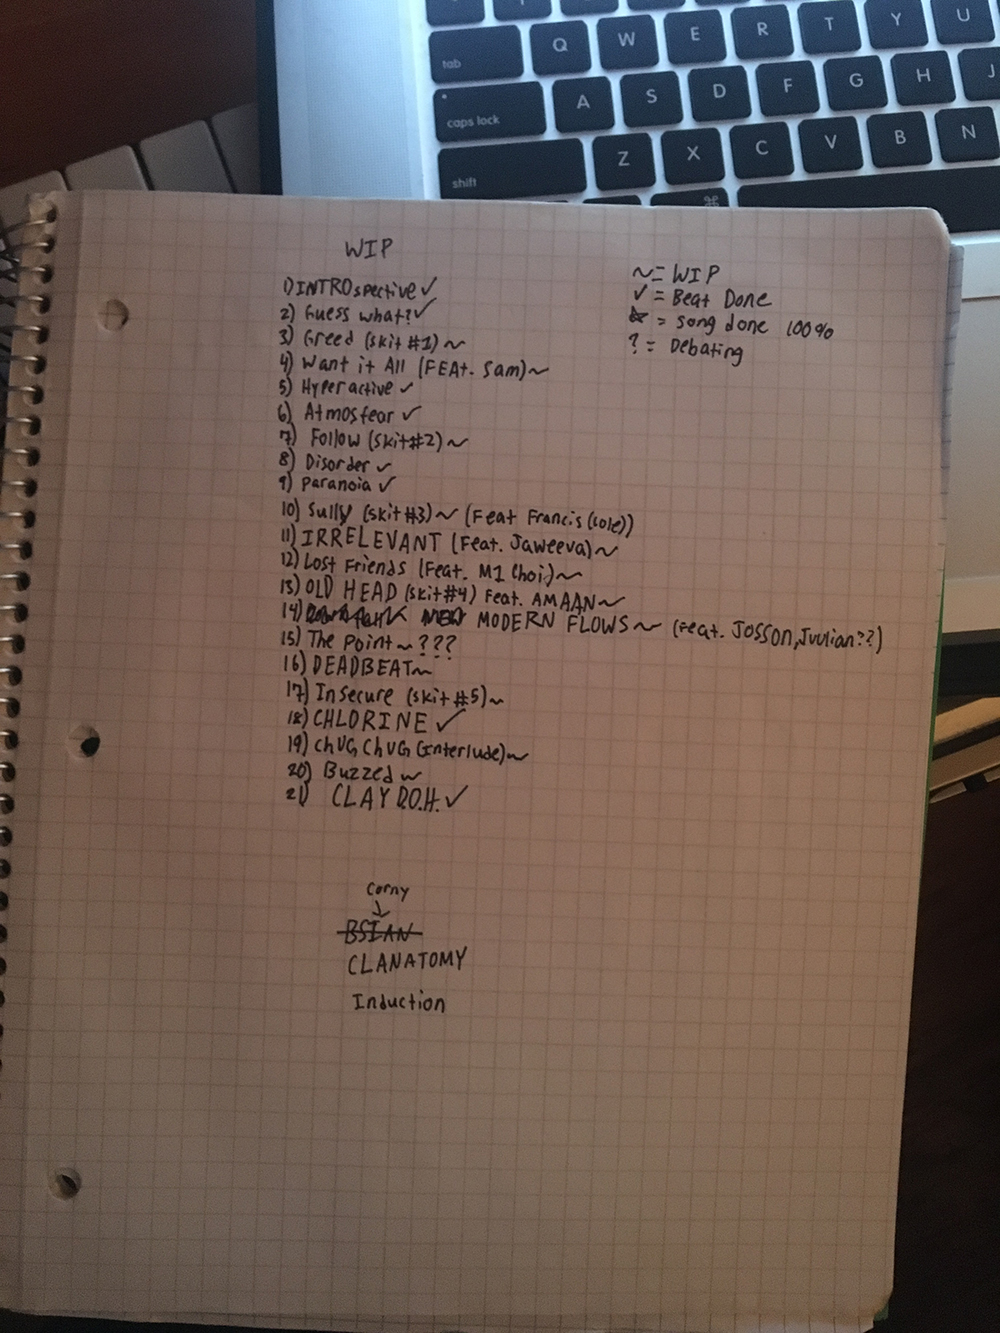 Q W E R T Y U
tab
A S D F G H J
caps lock
Z X C V B N
shift
⌘
WIP
1) INTROspective ✓
2) Guess what? ✓
3) Greed (skit #1) ~
4) Want it All (FEAt. Sam) ~
5) Hyperactive ✓
6) Atmosfear ✓
7) Follow (skit #2) ~
8) Disorder ✓
9) Paranoia ✓
10) Sully (skit #3) ~ (Feat Francis (Cole))
11) IRRELEVANT (Feat. Jaweeva) ~
12) Lost Friends (Feat. M1 Choi) ~
13) OLD HEAD (skit #4) Feat. AMAAN ~
14) MODERN FLOWS ~ (Feat. Josson, Juulian??)
15) The Point ~ ???
16) DEADBEAT ~
17) Insecure (skit #5) ~
18) CHLORINE ✓
19) ChUG ChUG (interlude) ~
20) Buzzed ~
21) CLAY D.O.H. ✓
~ = WIP
✓ = Beat Done
☆ = song done 100%
? = Debating
Corny
↓
BSIAN
CLANATOMY
Induction